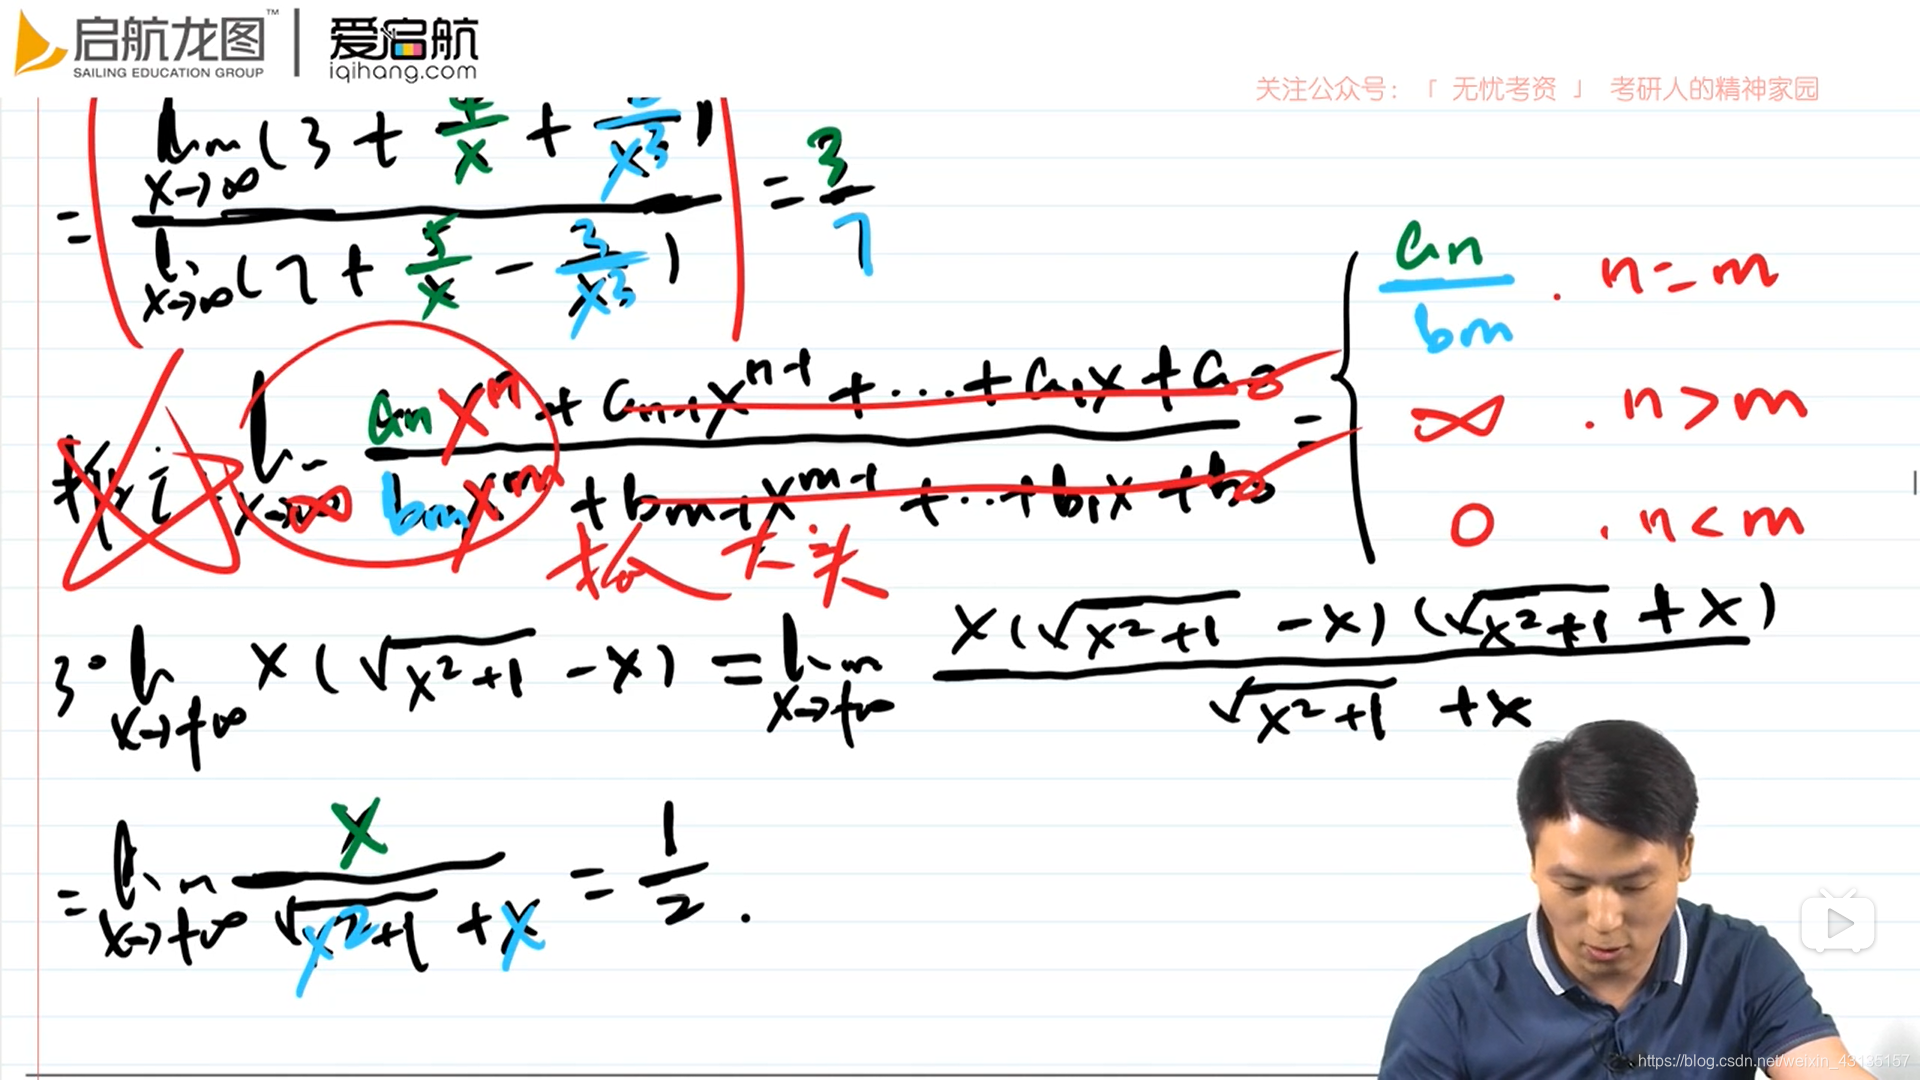 启航龙图™ | 爱启航
SAILING EDUCATION GROUP iqihang.com
关注公众号：「 无忧考资 」 考研人的精神家园
= lim x→∞ (3 + /x + /x³) / lim x→∞ (7 + 5/x - 3/x³) = 3/7
lim x→∞ (aₙxⁿ + aₙ₋₁xⁿ⁻¹ + ... + a₁x + a₀) / (bₘxᵐ + bₘ₋₁xᵐ⁻¹ + ... + b₁x + b₀) = { aₙ/bₘ . n = m
∞ . n > m
0 . n < m
抓大头
3° lim x→+∞ x(√(x²+1) - x) = lim x→+∞ x(√(x²+1) - x)(√(x²+1) + x) / (√(x²+1) + x)
= lim x→+∞ x / (√(x²+1) + x) = 1/2 .
https://blog.csdn.net/weixin_43135157